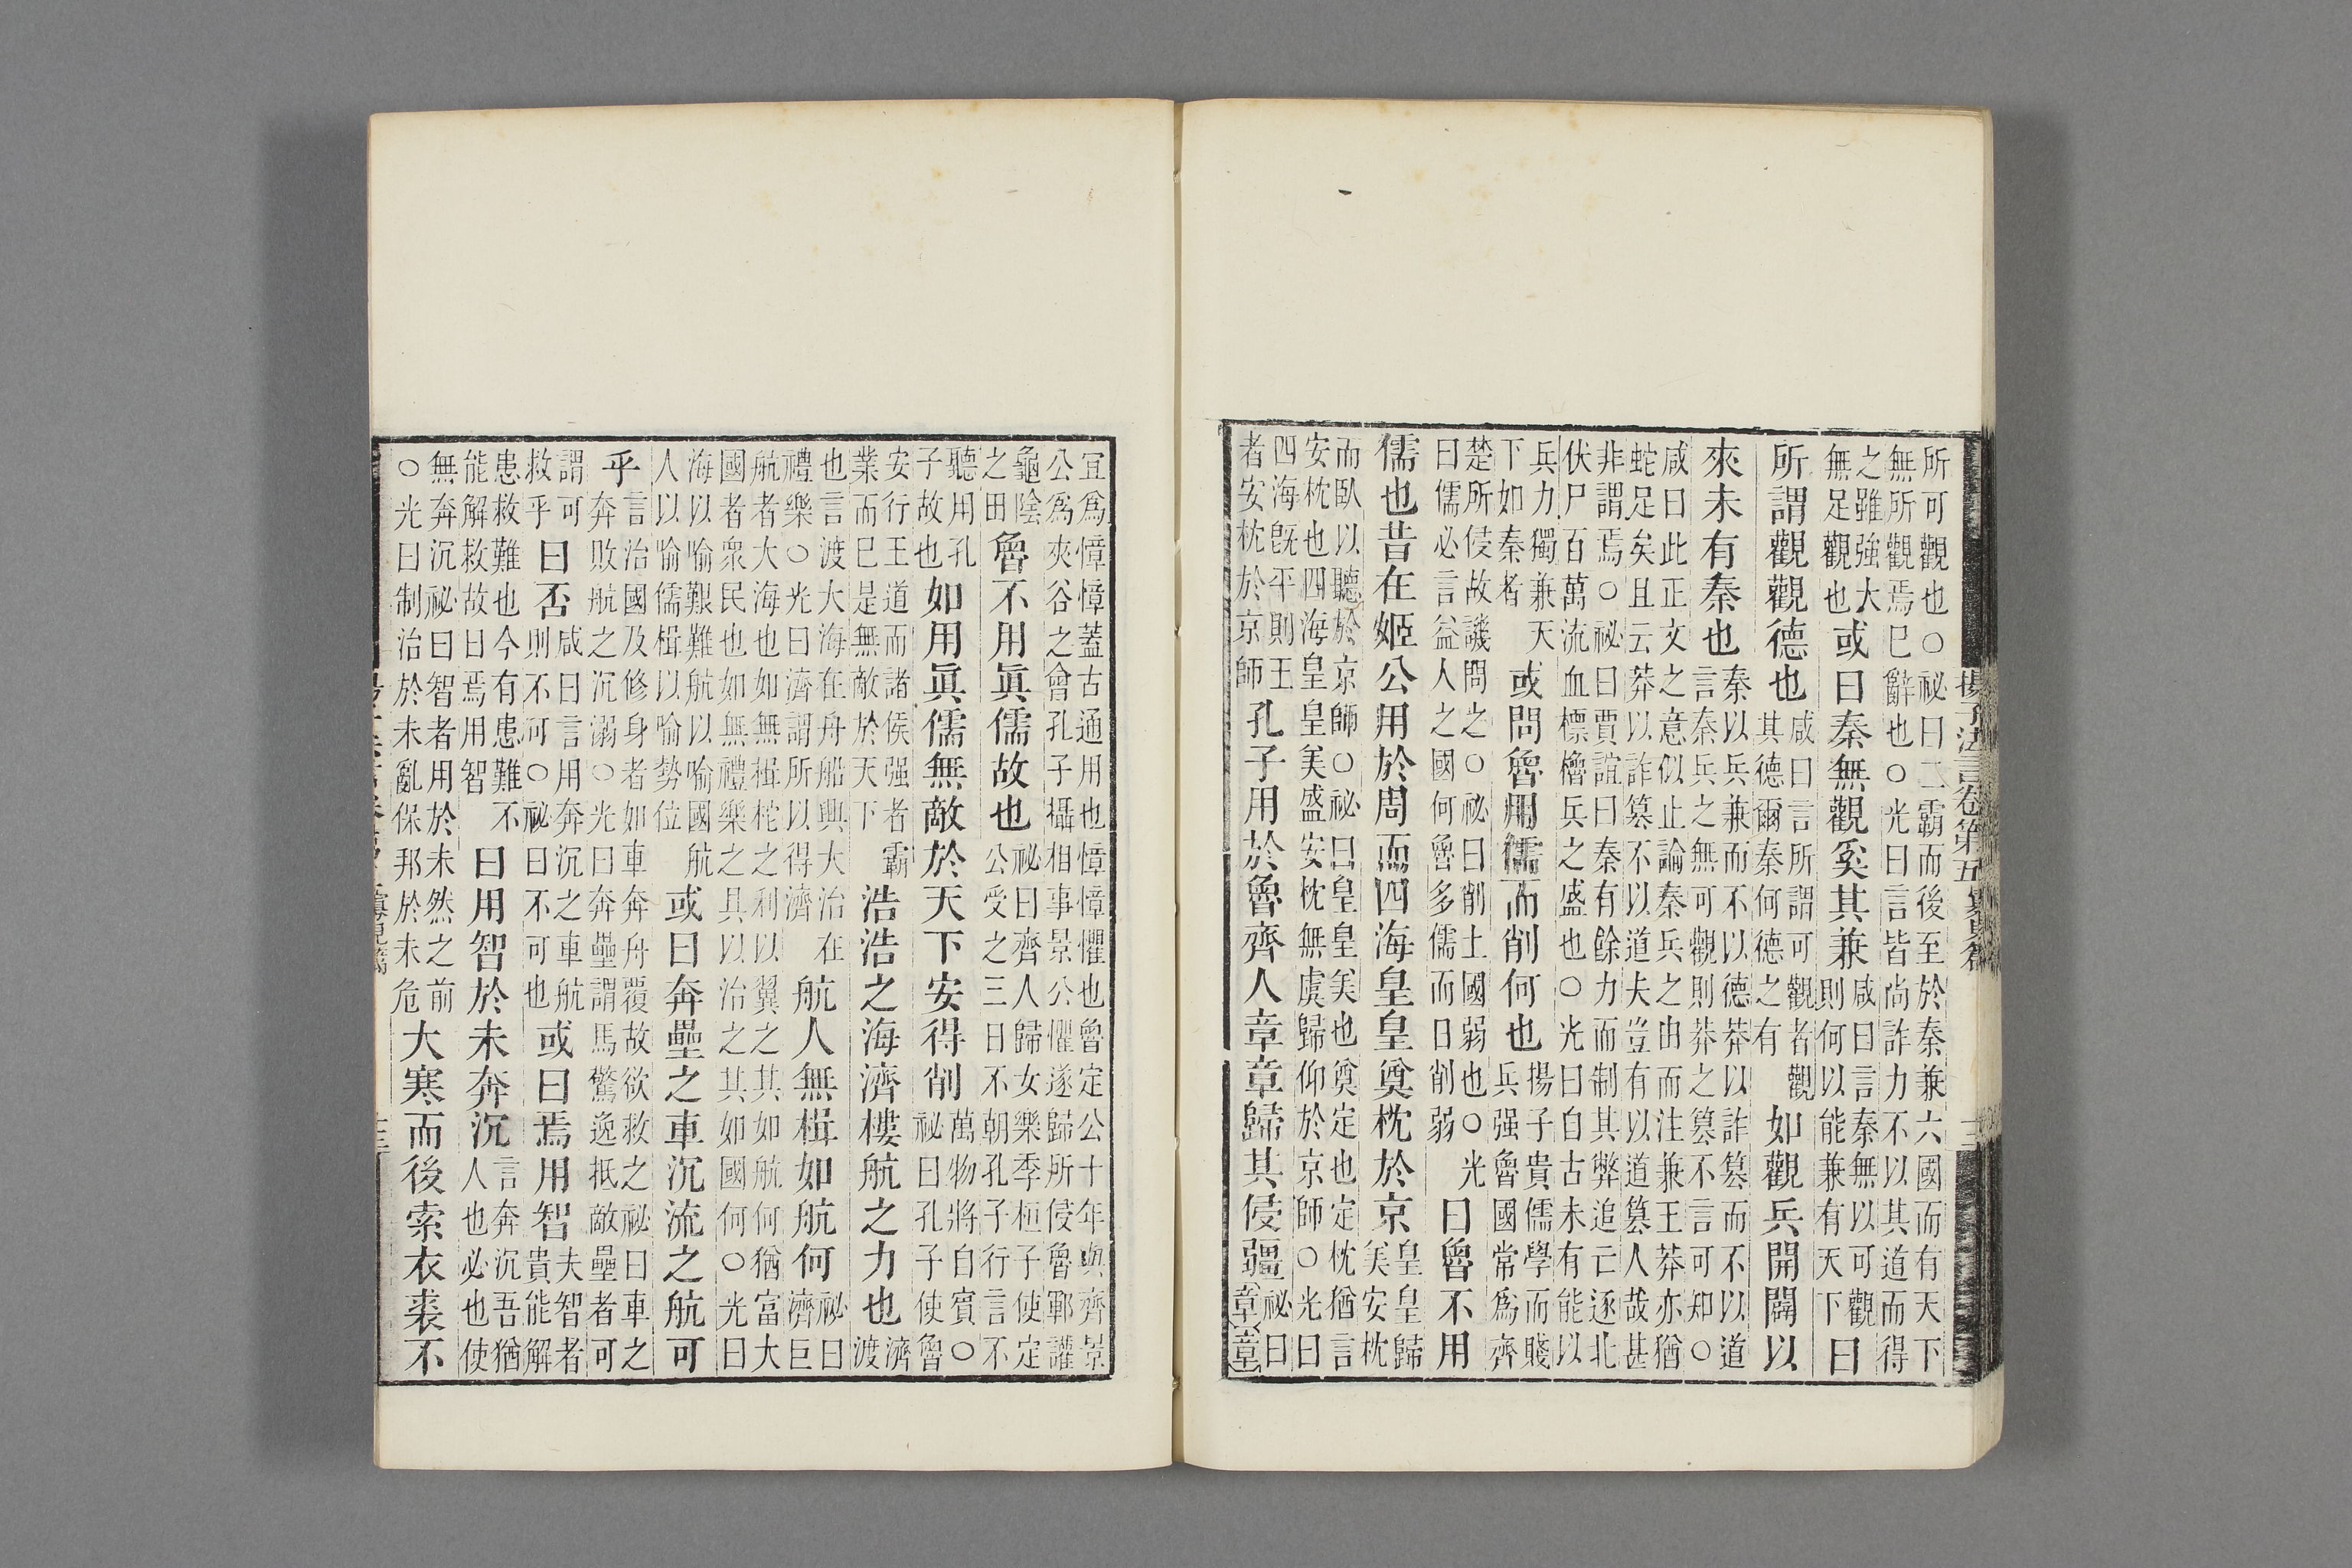 所可觀也○祕曰二霸而後至於秦兼六國而有天下
無所觀焉巳辭也○光曰言皆尚詐力不以其道而得
之雖強大
無足觀也
或曰秦無觀奚其兼
咸曰言秦無以可觀
則何以能兼有天下
曰
所謂觀觀德也
咸曰言所謂可觀者觀
其德爾秦何德之有
如觀兵開闢以
來未有秦也
秦以兵兼而不以德莽以詐篡而不以道
言秦兵之無可觀則莽之篡不言可知○
咸曰此正文之意似止論秦兵之由而注兼王莽亦猶
蛇足矣且云莽以詐篡不以道夫豈有以道篡人哉甚
非謂焉○祕曰賈誼曰秦有餘力而制其弊追亡逐北
伏尸百萬流血漂櫓兵之盛也○光曰自古未有能以
兵力獨兼天
下如秦者
或問魯用儒而削何也
揚子貴儒學而賤
兵强魯國常爲齊
楚所侵故譏問之○祕曰削土國弱也○光
曰儒必言益人之國何魯多儒而日削弱
曰魯不用
儒也昔在姬公用於周而四海皇皇奠枕於京
皇皇歸
美安枕
而臥以聽於京師○祕曰皇皇美也奠定也定枕猶言
安枕也四海皇皇美盛安枕無虞歸仰於京師○光曰
四海旣平則王
者安枕於京師
孔子用於魯齊人章章歸其侵疆
祕曰
章章
揚子法言卷第五 寡見篇
十二
宜爲慞慞蓋古通用也慞慞懼也魯定公十年與齊景
公爲夾谷之會孔子攝相事景公懼遂歸所侵魯鄆讙
龜陰
之田
魯不用眞儒故也
祕曰齊人歸女樂季桓子使定
公受之三日不朝孔子行言不
聽用孔
子故也
如用眞儒無敵於天下安得削
萬物將自賓○
祕曰孔子使魯
安行王道而諸侯强者霸
業而巳是無敵於天下
浩浩之海濟樓航之力也
濟
渡
也言渡大海在舟船興大治在
禮樂○光曰濟謂所以得濟
航人無楫如航何
祕曰
濟巨
航者大海也如無楫柁之利以翼之其如航何猶富大
國者衆民也如無禮樂之具以治之其如國何○光曰
海以喻艱難航以喻國航
人以喻儒楫以喻勢位
或曰奔壘之車沉流之航可
乎
言治國及修身者如車奔舟覆故欲救之祕曰車之
奔敗航之沉溺○光曰奔壘謂馬驚逸抵敵壘者可
謂可
救乎
曰否
咸曰言用奔沉之車航
則不可○祕曰不可也
或曰焉用智
夫智者
貴能解
患救難也今有患難不
能解救故曰焉用智
曰用智於未奔沉
言奔沉吾猶
人也必也使
無奔沉祕曰智者用於未然之前
○光曰制治於未亂保邦於未危
大寒而後索衣裘不